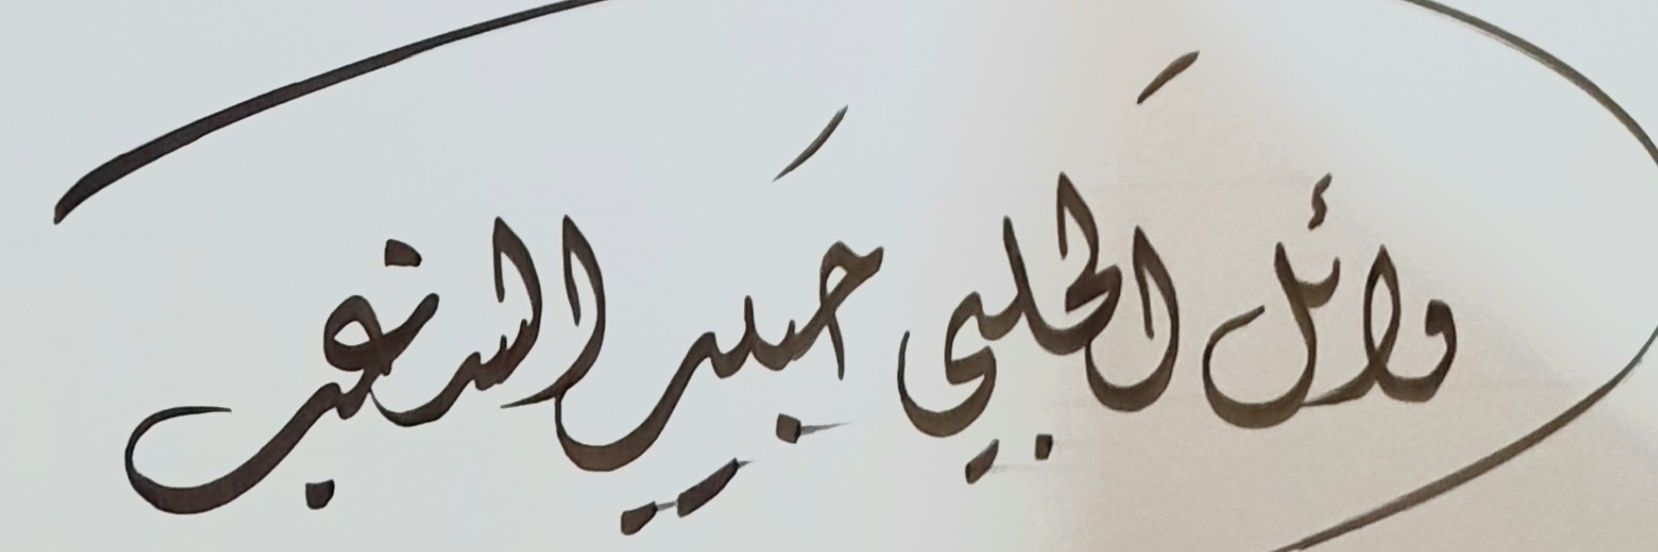 وائل الحلبي حبيب الشعب